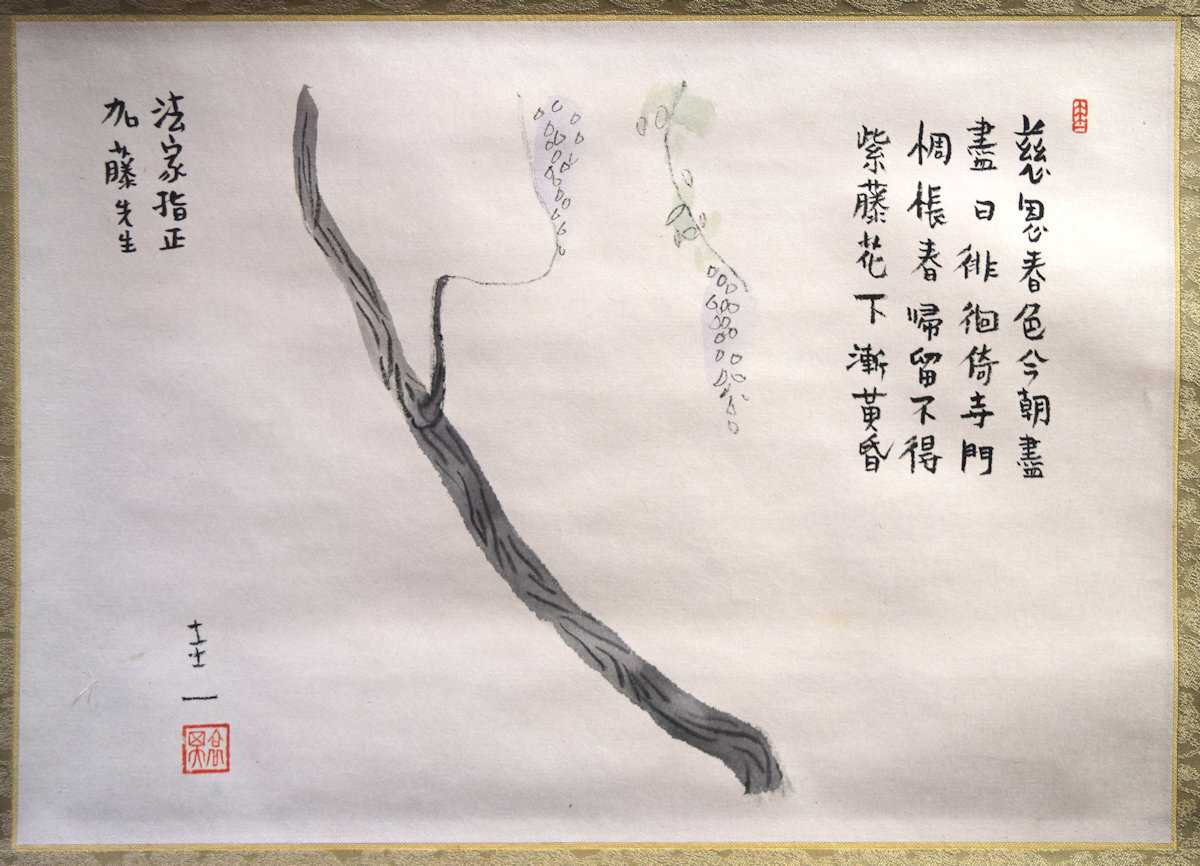 慈恩春色今朝盡
盡日徘徊倚寺門
惆悵春歸留不得
紫藤花下漸黄昏
法家指正
加藤先生
圭一